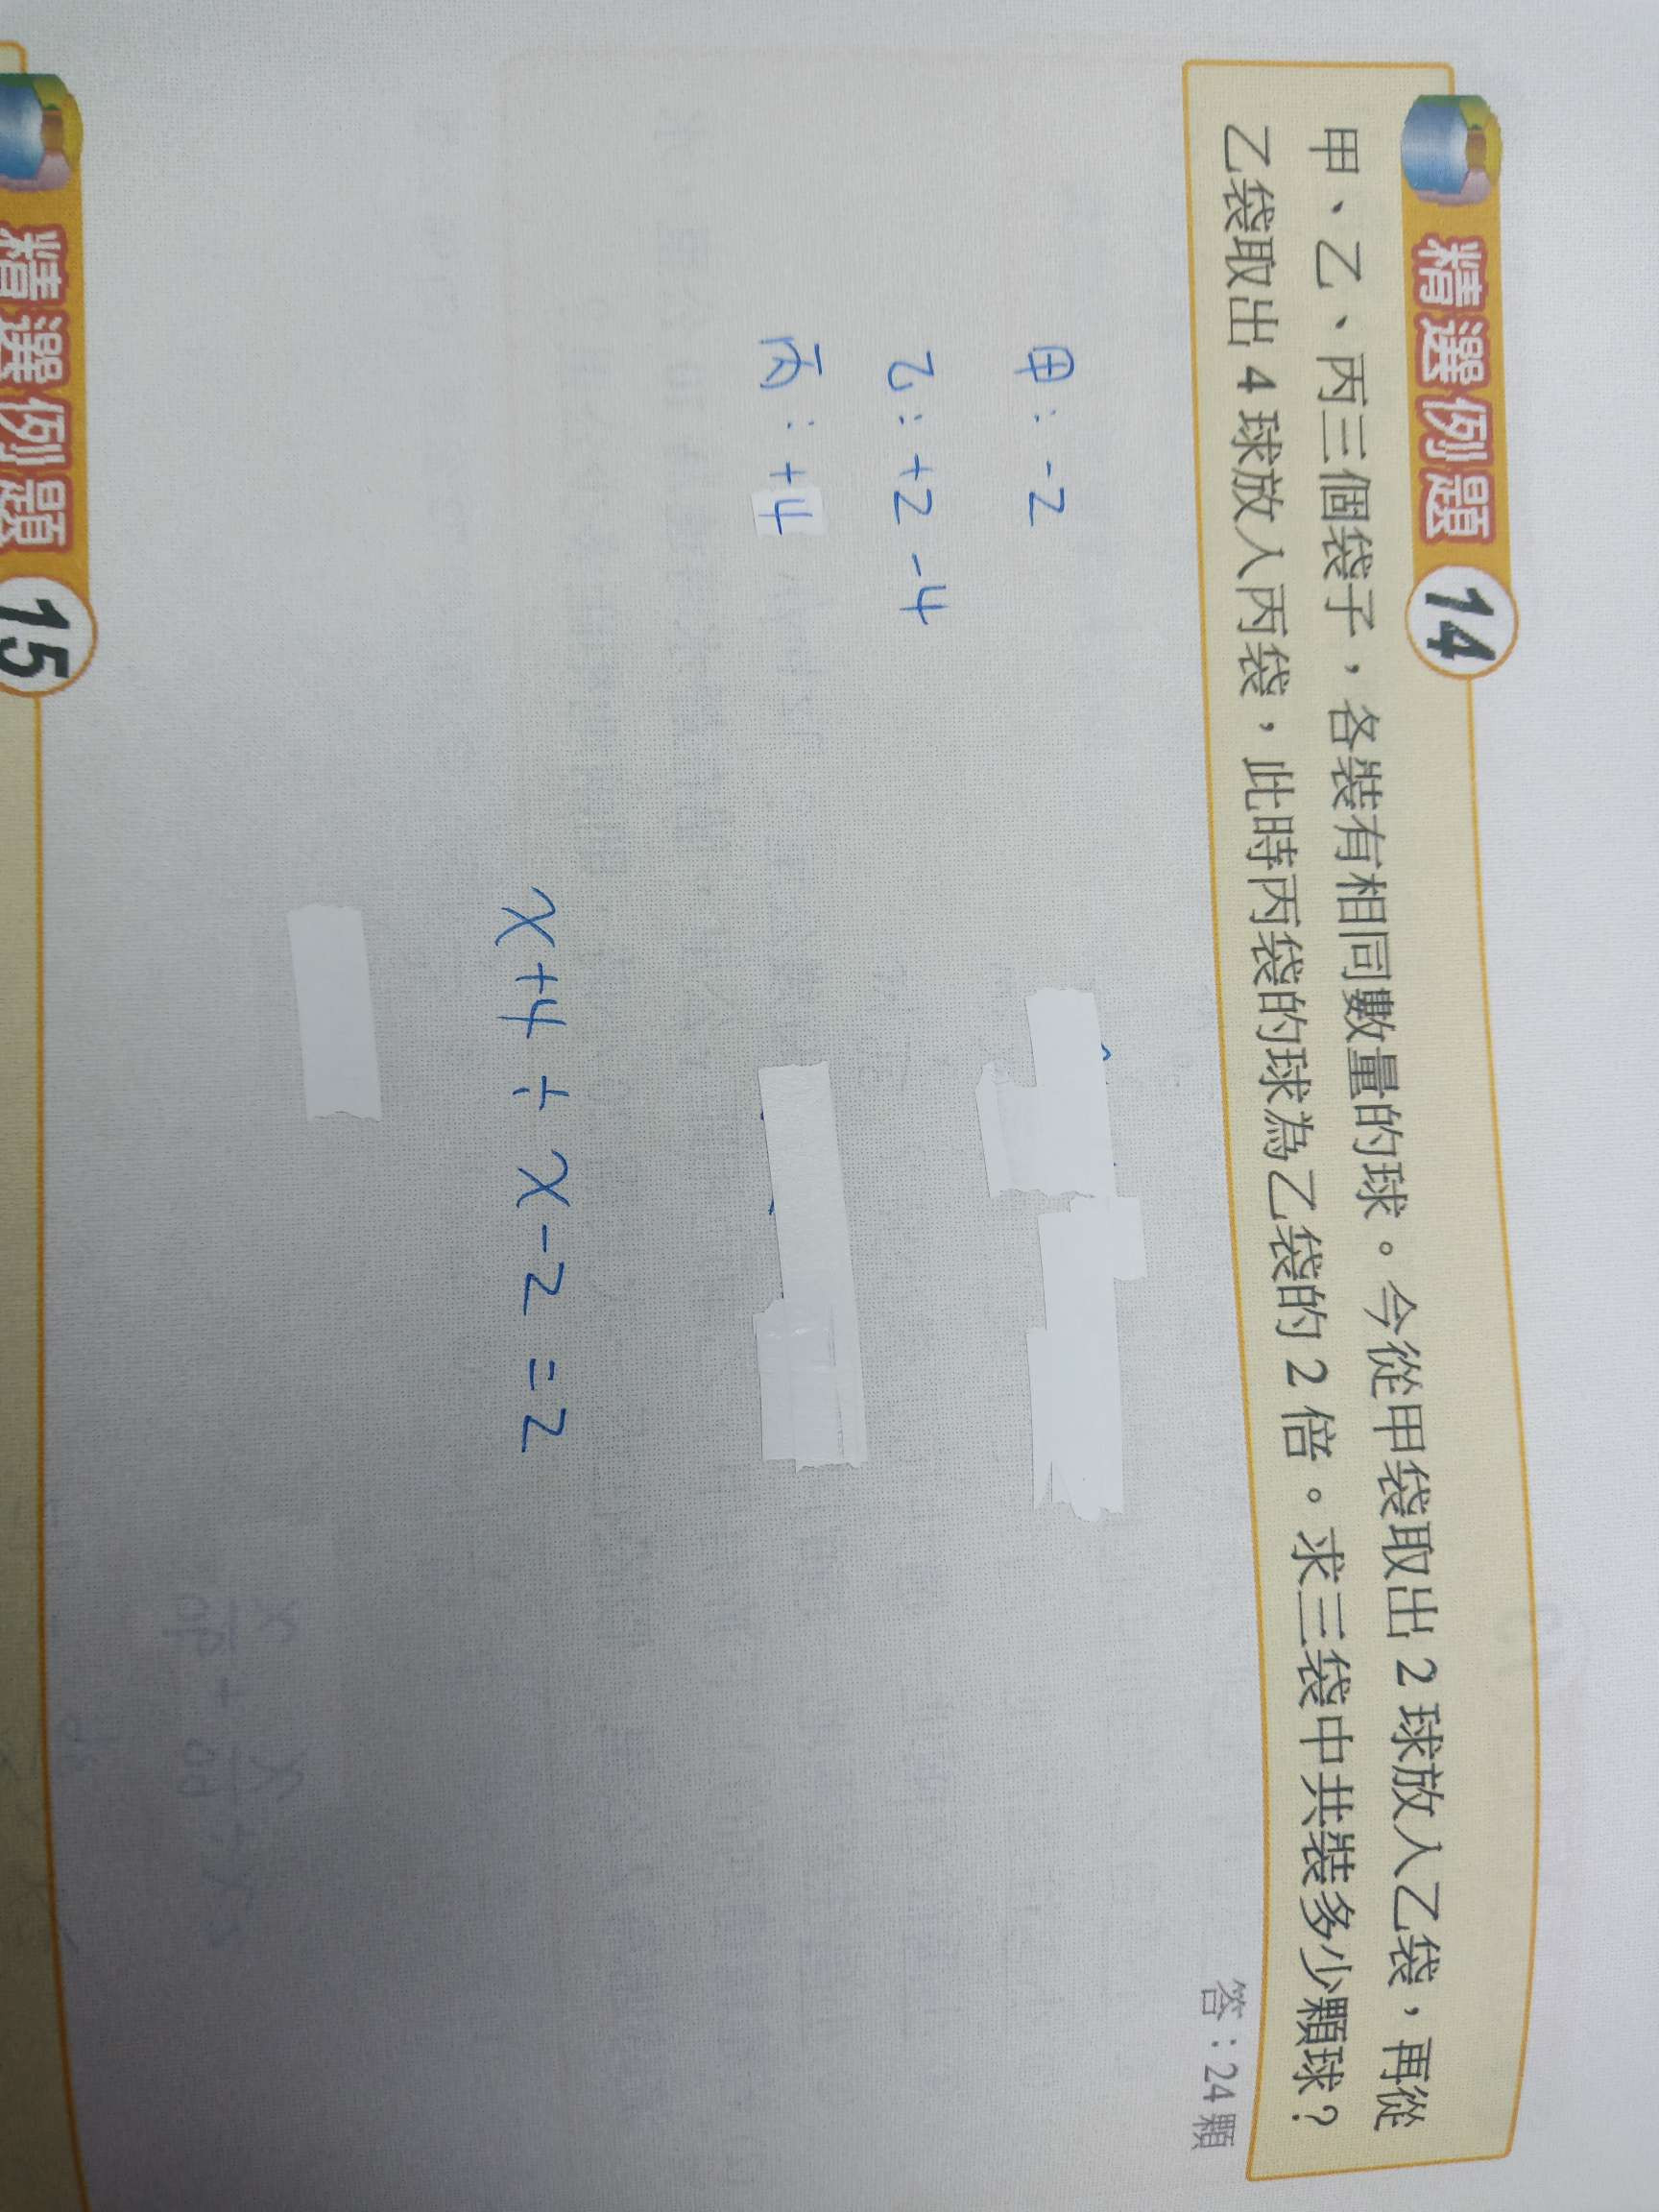 精選例題 14
甲、乙、丙三個袋子，各裝有相同數量的球。今從甲袋取出 2 球放入乙袋，再從
乙袋取出 4 球放入丙袋，此時丙袋的球為乙袋的 2 倍。求三袋中共裝多少顆球？
答：24 顆
甲：-2
乙：+2 -4
丙：+4
x+4 ÷ x-2 = 2
精選例題 15